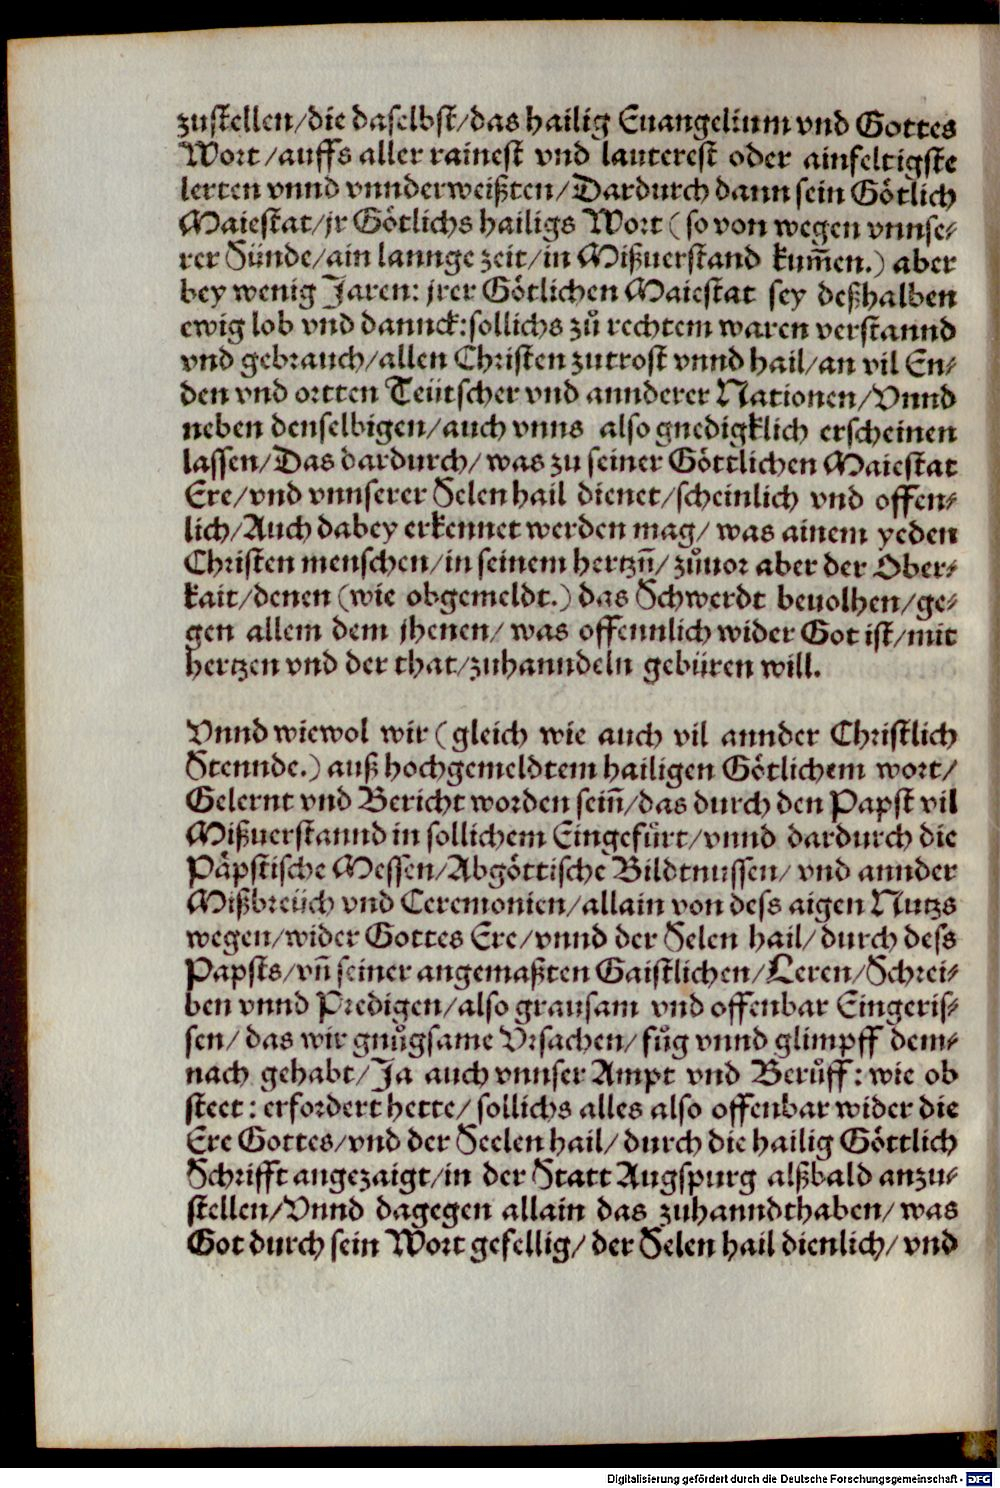 zustellen/die daselbst/das hailig Euangelium vnd Gottes
Wort/auffs aller rainest vnd lauterest oder ainfeltigste
lerten vnnd vnnderweißten/Dardurch dann sein Götlich
Maiestat/jr Götlichs hailigs Wort (so von wegen vnnse-
rer Sünde/ain lannge zeit/in Mißuerstand kum̃en.) aber
bey wenig Jaren: jrer Götlichen Maiestat sey deßhalben
ewig lob vnd dannck:sollichs zů rechtem waren verstannd
vnd gebrauch/allen Christen zutrost vnnd hail/an vil En-
den vnd ortten Teütscher vnd annderer Nationen/Vnnd
neben denselbigen/auch vnns also gnedigklich erscheinen
lassen/Das dardurch/was zu seiner Göttlichen Maiestat
Ere/vnd vnnserer Selen hail dienet/scheinlich vnd offen-
lich/Auch dabey erkennet werden mag/was ainem yeden
Christen menschen/in seinem hertzñ/zůuor aber der Ober-
kait/denen (wie obgemeldt.) das Schwerdt beuolhen/ge-
gen allem dem jhenen/was offennlich wider Got ist/mit
hertzen vnd der that/zuhanndeln gebüren will.
Vnnd wiewol wir (gleich wie auch vil annder Christlich
Stennde.) auß hochgemeldtem hailigen Götlichem wort/
Gelernt vnd Bericht worden seiñ/das durch den Papst vil
Mißuerstannd in sollichem Eingefůrt/vnnd dardurch die
Päpstische Messen/Abgöttische Bildtnussen/vnd annder
Mißbreüch vnd Ceremonien/allain von dess aigen Nutzs
wegen/wider Gottes Ere/vnnd der Selen hail/durch dess
Papsts/vñ seiner angemaßten Gaistlichen/Leren/Schrei-
ben vnnd Predigen/also grausam vnd offenbar Eingeris-
sen/das wir gnůgsame Vrsachen/fůg vnnd glimpff dem-
nach gehabt/Ja auch vnnser Ampt vnd Berůff:wie ob
steet:erfordert hette/sollichs alles also offenbar wider die
Ere Gottes/vnd der Seelen hail/durch die hailig Göttlich
Schrifft angezaigt/in der Statt Augspurg alßbald anzu-
stellen/Vnnd dagegen allain das zuhanndthaben/was
Got durch sein Wort gefellig/der Selen hail dienlich/vnd
Digitalisierung gefördert durch die Deutsche Forschungsgemeinschaft - DFG